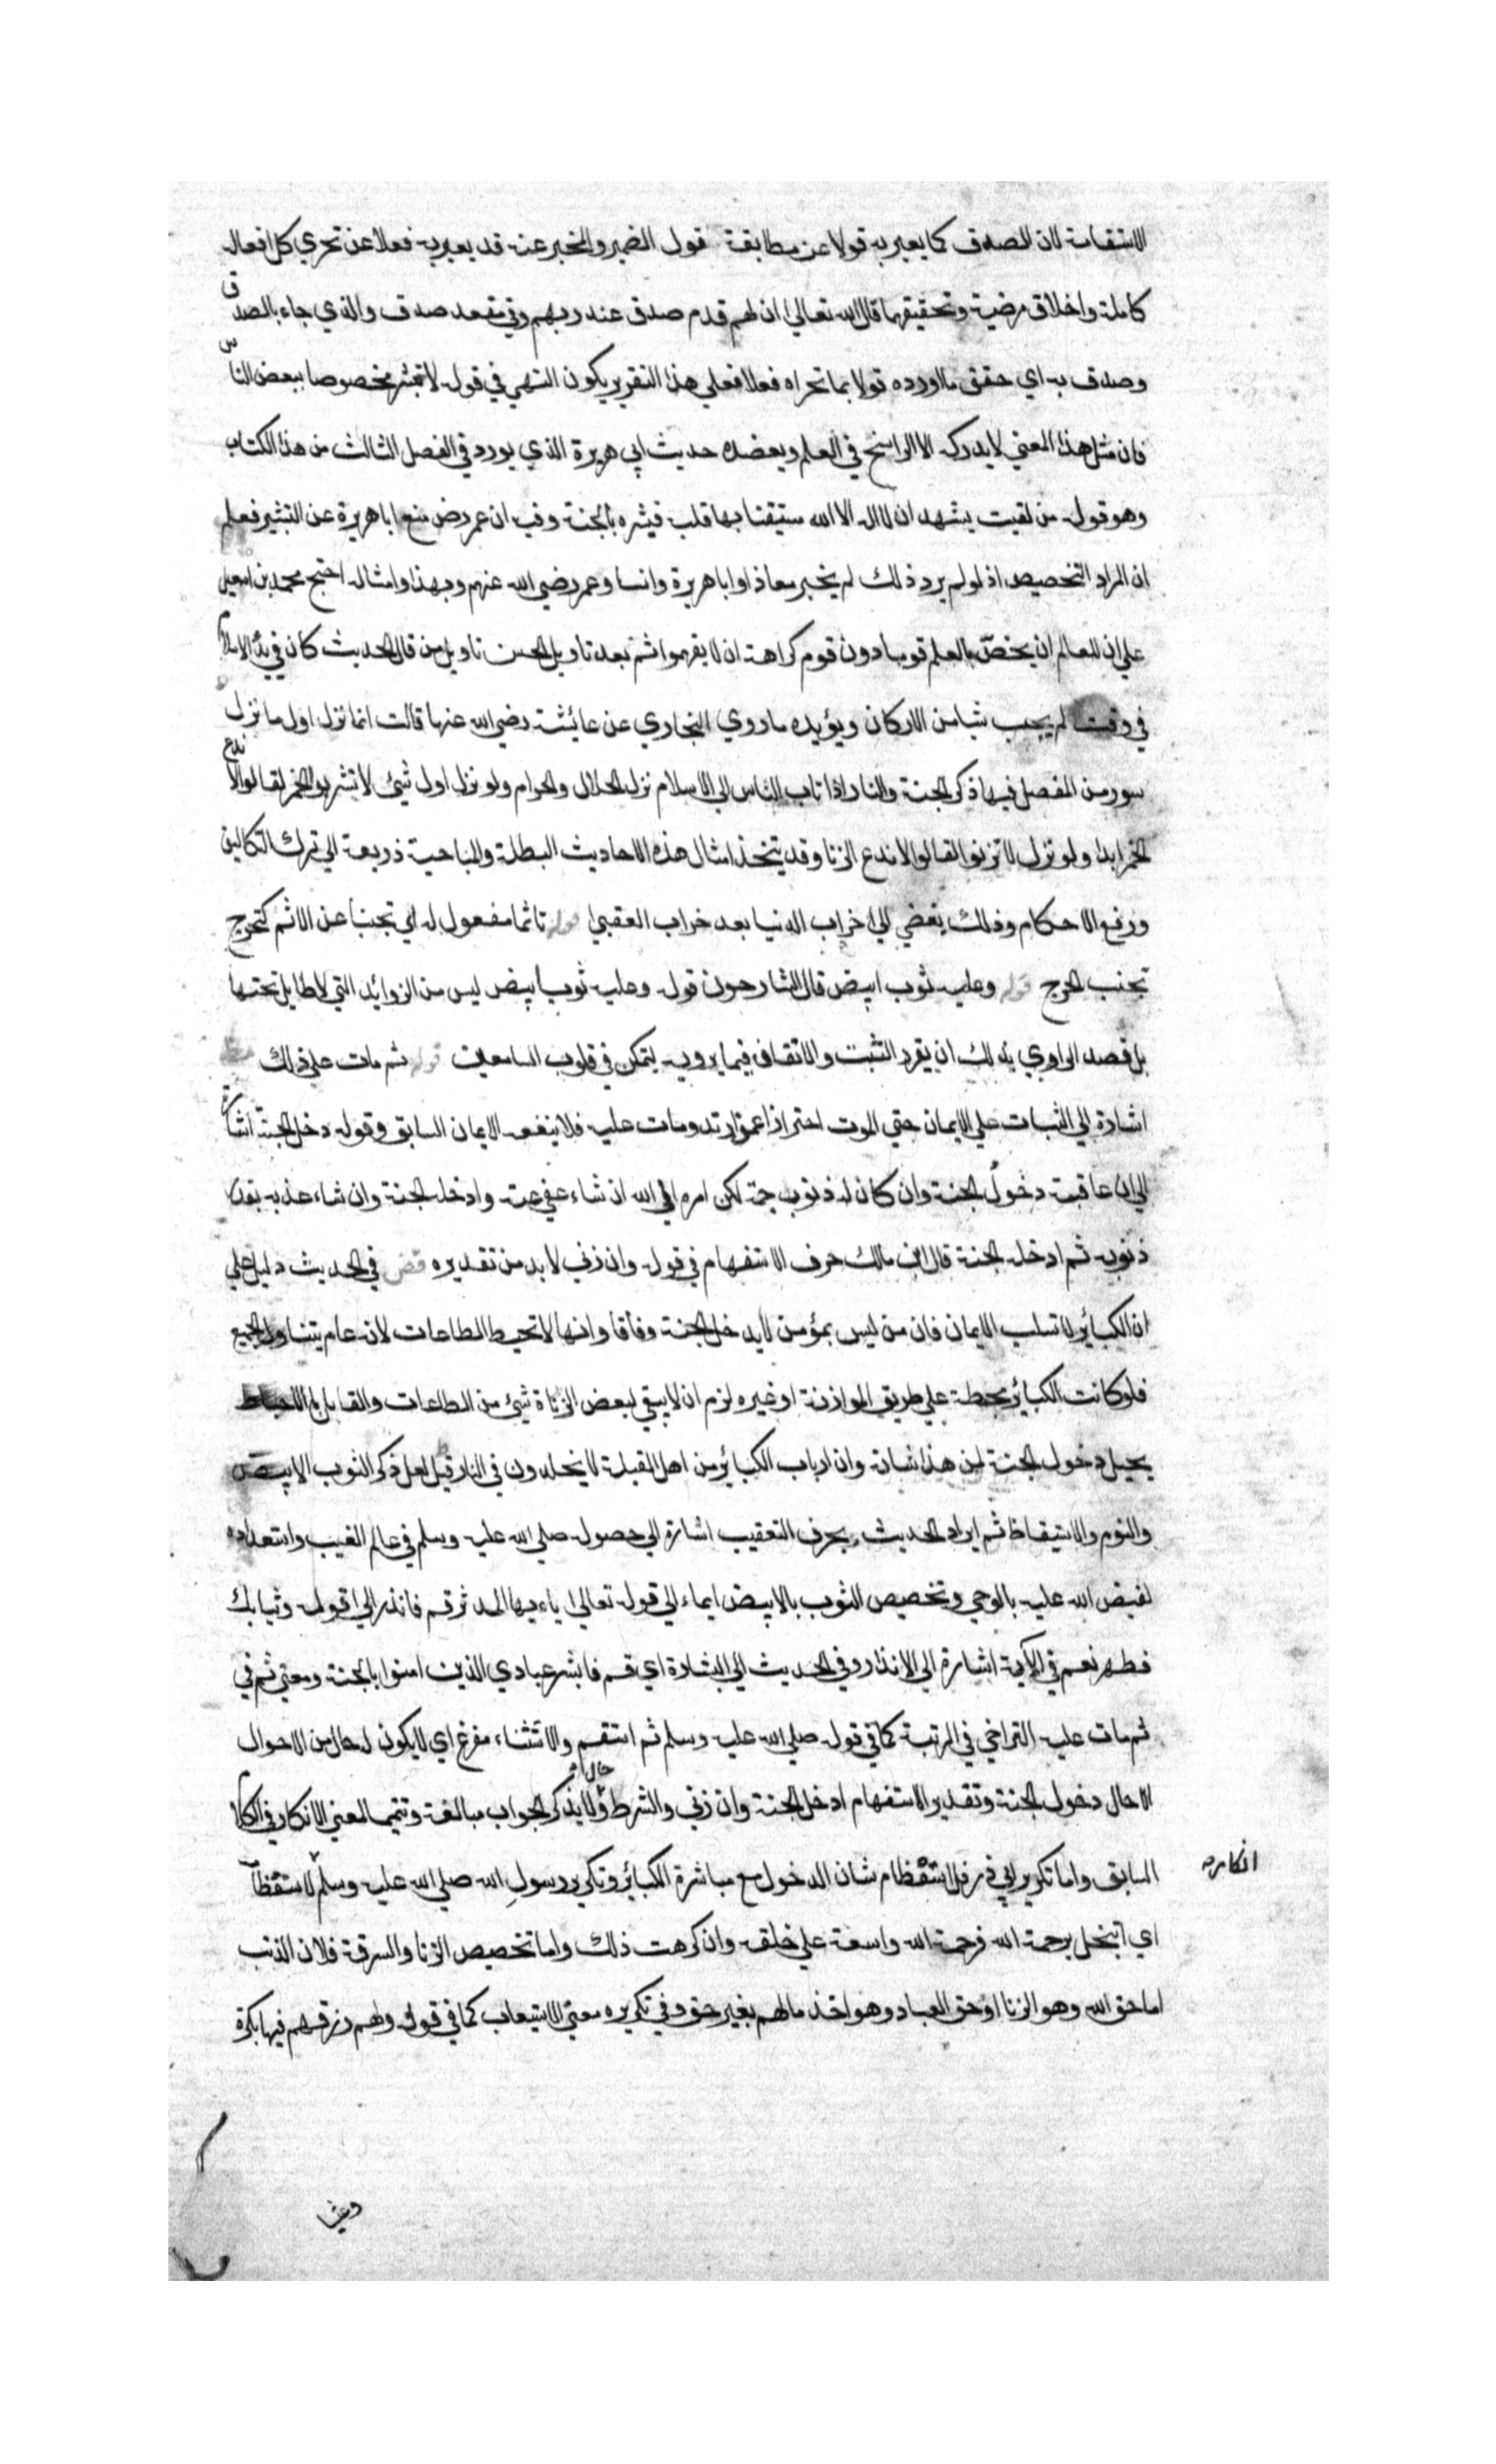 الاستقامة لان الصدق كما يعبر به قولا عن مطابقة قول الضمير والمخبر عنه قد يعبر به فعلا عن تحري كل افعال
كاملة واخلاق مرضية وتحقيقهما قال الله تعالي ان لهم قدم صدق عند ربهم وفي مقعد صدق والذي جاء بالصدق
وصدق به اي حقق ما اورده قولا بما تحراه فعلا فعلي هذا التقرير يكون النهي في قوله لا تبشرهم مخصوصا ببعض الناس
فان مثل هذا المعني لا يدركه الا الراسخ في العلم ويعضده حديث ابي هريرة الذي يورد في الفصل الثالث من هذا الكتاب
وهو قوله من لقيت يشهد ان لا اله الا الله مستيقنا بها قلبه فبشره بالجنة وفيه ان عمر رض منع ابا هريرة عن التبشير فعلم
ان المراد التخصيص اذ لو لم يرد ذلك لم يخبر معاذا وابا هريرة وانسا وعمر رضي الله عنهم وبهذا وامثاله احتج محمد بن اسمعيل
علي ان للعالم ان يخصّ بالعلم قوما دون قوم كراهة ان لا يفهموا ثم بعد تاويل الحسن تاويل من قال الحديث كان في بدء الاسلام
في وقت لم يجب شيا من الاركان ويؤيده ما روي البخاري عن عايشة رضي الله عنها قالت انما نزل اول ما نزل
سور من المفصل فيها ذكر الجنة والنار اذا تاب الناس الي الاسلام نزل الحلال والحرام ولو نزل اول شيئ لا تشربوا الخمر لقالوا لا ندع
الخمر ابدا ولو نزل لا تزنوا لقالوا لا ندع الزنا وقد يتخذ امثال هذه الاحاديث البطلة والمباحية ذريعة الي ترك التكاليف
ورفع الاحكام وذلك يفضي الي خراب الدنيا بعد خراب العقبي قوله تاثما مفعول له اي تجنبا عن الاثم كتحرج
تجنب الحرج قوله وعليه ثوب ابيض قال الشارحون قوله وعليه ثوب ابيض ليس من الزوائد التي لا طايل تحتها
بل قصد الراوي بذلك ان يقرر التثبت والاتقان فيما يرويه ليتمكن في قلوب السامعين قوله ثم مات علي ذلك
اشارة الي الثبات علي الايمان حتي الموت احترازا عمن ارتد ومات عليه فلا ينفعه الايمان السابق وقوله دخل الجنة اشارة
الي ان عاقبته دخولُ الجنة وان كان له ذنوب جمة لكن امره الي الله ان شاء عفي عنه وادخله الجنة وان شاء عذبه بقدر
ذنوبه ثم ادخله الجنة قال ابن مالك حرف الاستفهام في قوله وان زني لا بد من تقديره قض في الحديث دليل علي
ان الكبائر لا تسلب الايمان فان من ليس بمؤمن لا يدخل الجنة وفاقا وانها لا تحبط الطاعات لانه عام يتناول الجميع
فلو كانت الكبائر محبطة علي طريق الموازنة او غيره لزم ان لا يبقي لبعض الزناة شيئ من الطاعات والقايل بالاحباط
يحيل دخول الجنة لمن هذا شانه وان ارباب الكبائر من اهل القبلة لا يخلدون في النار قيل لعل ذكر الثوب الابيض
والنوم والاستيقاظ ثم ايراد الحديث بحرف التعقيب اشارة الي حصوله صلي الله عليه وسلم في عالم الغيب واستعداده
لفيض الله عليه بالوحي وتخصيص الثوب بالابيض ايماء الي قوله تعالي يا ايها المدثر قم فانذر الي قوله وثيابك
فطهر نعم في الآية اشارة الي الانذار وفي الحديث الي البشارة اي قم فابشر عبادي الذين امنوا بالجنة ومعني ثم في
ثم مات عليه التراخي في المرتبة كما في قوله صلي الله عليه وسلم ثم استقم والاستثناء مفرغ اي لا يكون له حال من الاحوال
الا حال دخول الجنة وتقدير الاستفهام ادخل الجنة وان زني والشرط حال ولا يذكر الجواب مبالغة وتتميما لمعني الانكار في الكلام
السابق واما تكرير ابي ذر فلاستعظام شان الدخول مع مباشرة الكبائر وتكرير رسول الله صلي الله عليه وسلم لاستعظام
انكاره
اي اتبخل برحمة الله فرحمة الله واسعة علي خلقه وان كرهت ذلك واما تخصيص الزنا والسرقة فلان الذنب
اما حق الله وهو الزنا او حق العباد وهو اخذ مالهم بغير حق وفي تكريره معني الاستيعاب كما في قوله ولهم رزقهم فيها بكرة
وعشيا